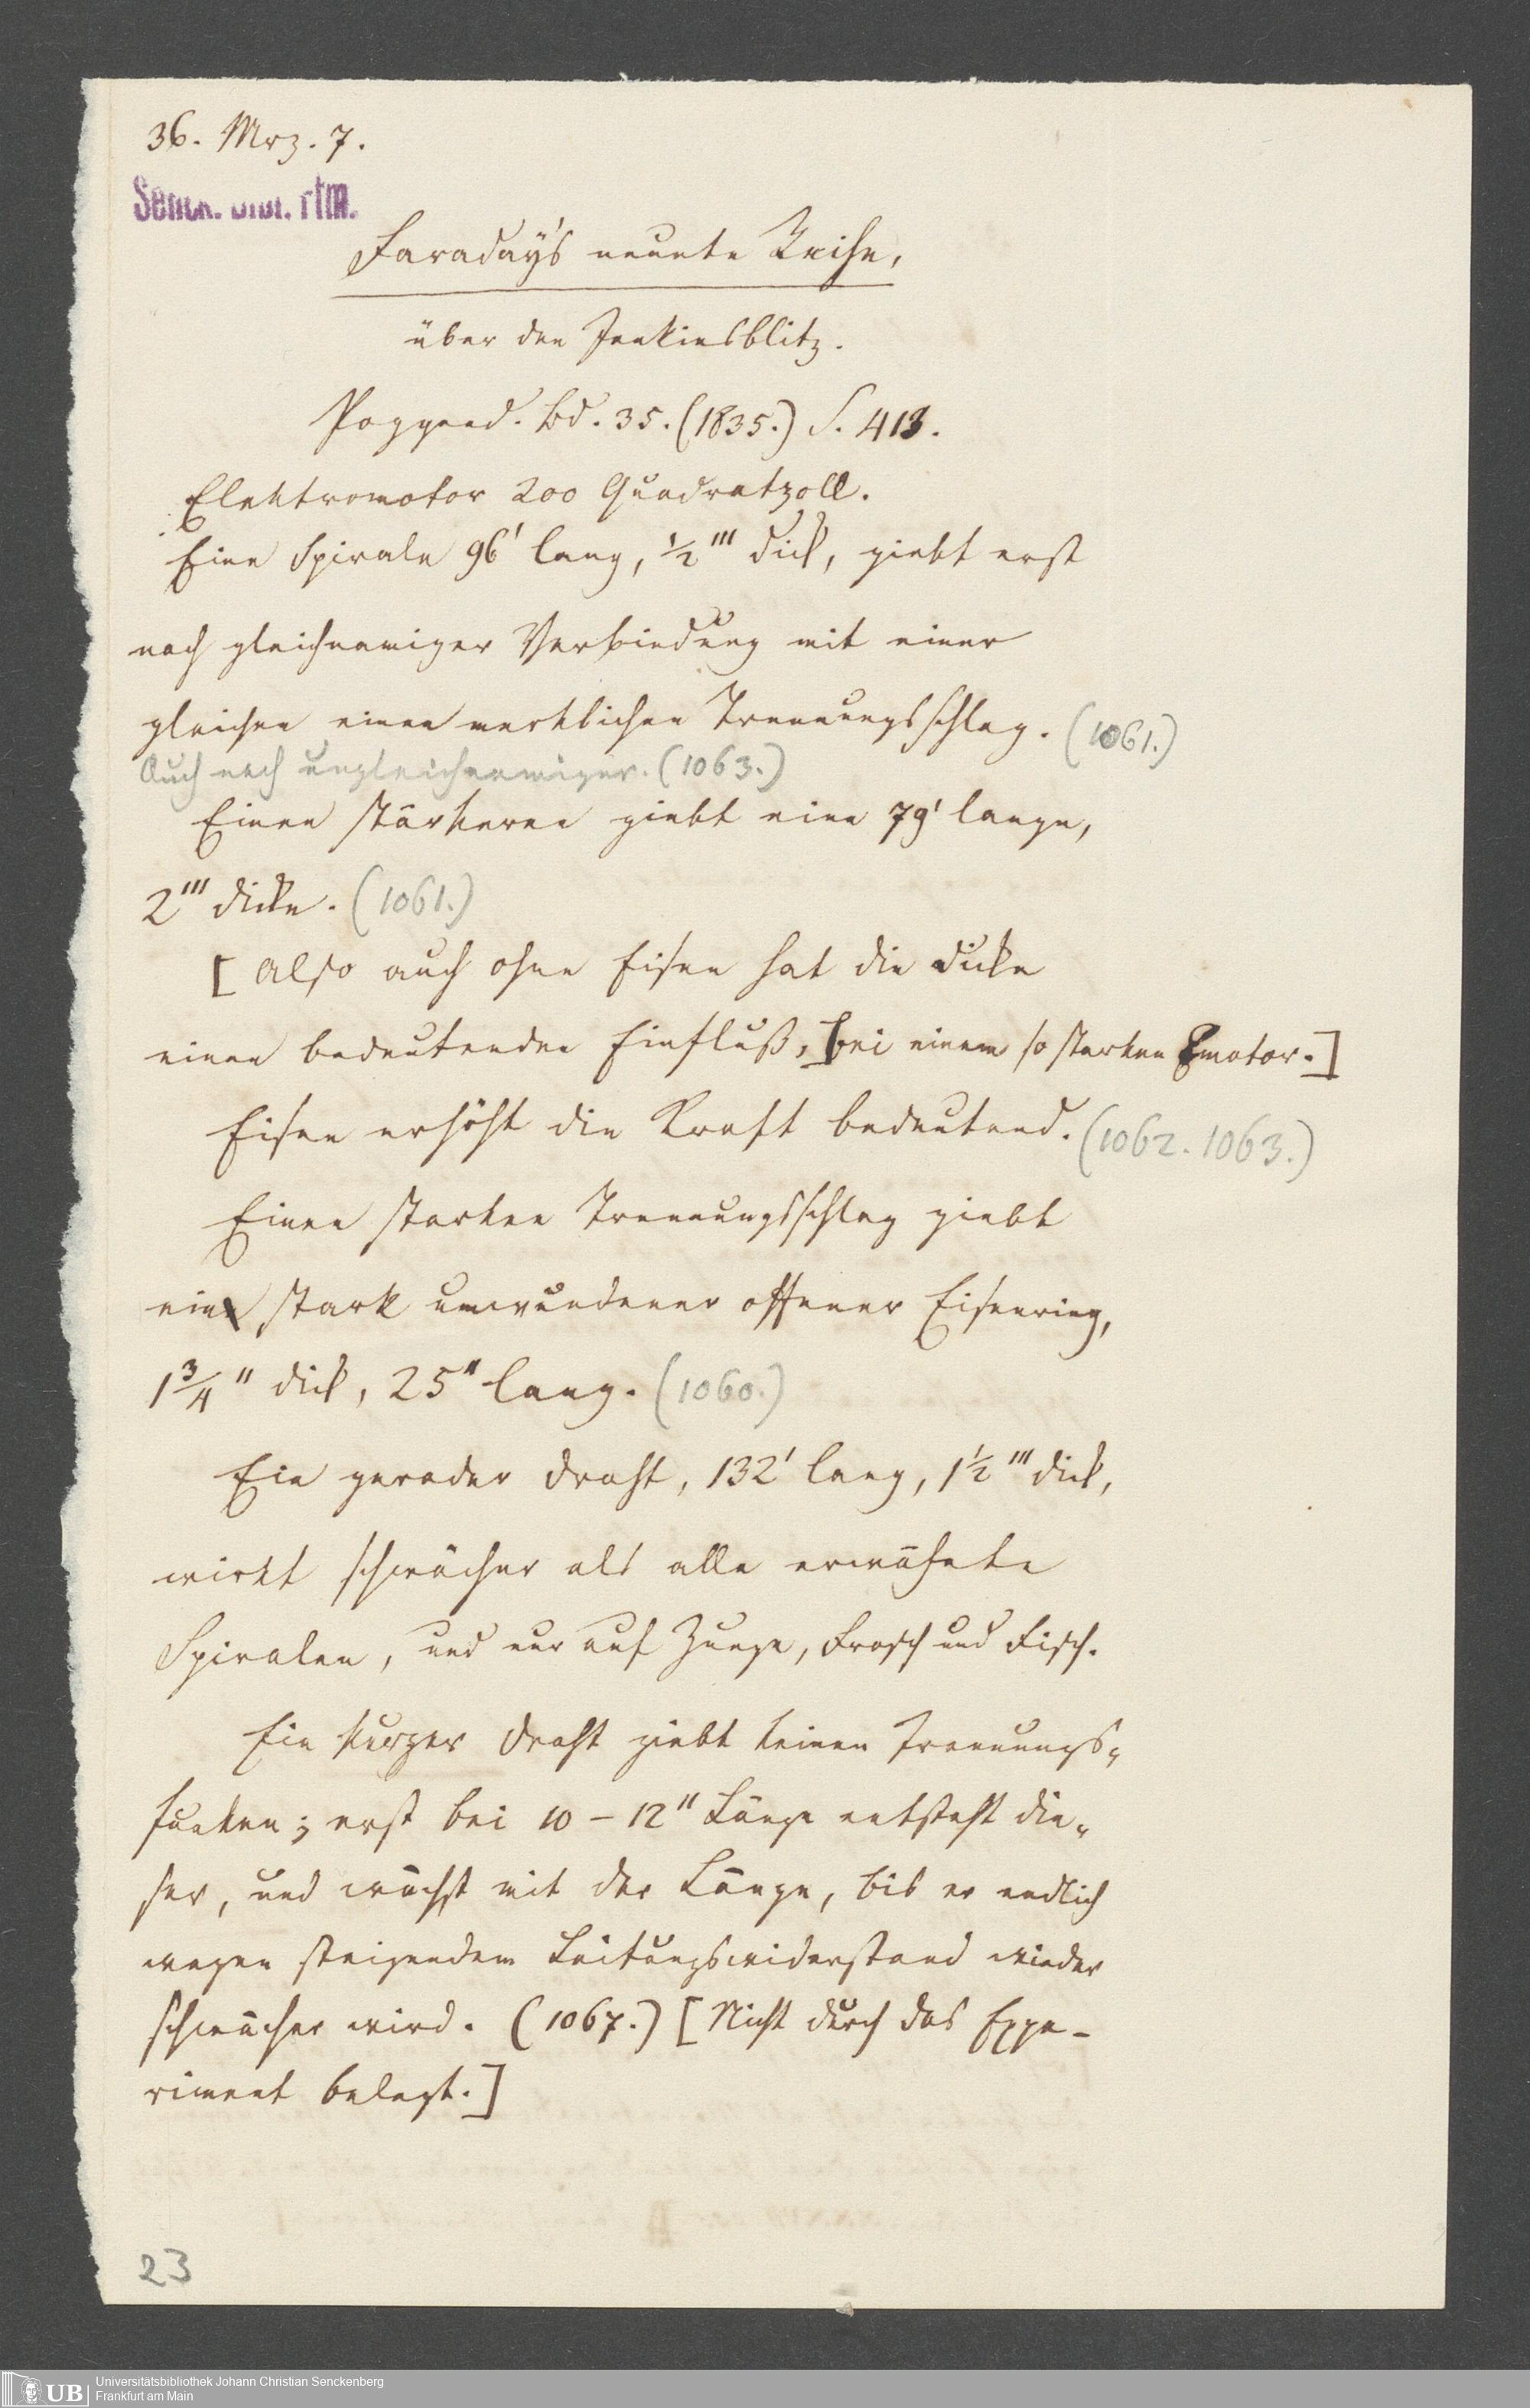 36. Mrz. 7.
Senck. Bibl. Ffm.
Faraday's neunte Reihe,
über den Jenkinsblitz.
Poggend. Bd. 35. (1835.) S. 413.
Elektromotor 200 Quadratzoll.
Eine Spirale 96' lang, ½''' dick, giebt erst
nach gleichnamiger Verbindung mit einer
gleichen einen merklichen Trennungsschlag. (1061.)
Auch nach ungleichnamiger. (1063.)
Einen stärkeren giebt eine 79' lange,
2''' dicke. (1061.)
[Also auch ohne Eisen hat die Dicke
einen bedeutenden Einfluß, bei einem so starken Emotor.]
Eisen erhöht die Kraft bedeutend. (1062. 1063.)
Einen starken Trennungsschlag giebt
ein stark umwundener offener Eisenring,
1¾'' dick, 25'' lang. (1060.)
Ein gerader Draht, 132' lang, 1½''' dick,
wirkt schwächer als alle erwähnte
Spiralen, und nur auf Zunge, Frosch und Fisch.
Ein kurzer Draht giebt keinen Trennungs-
funken; erst bei 10 – 12'' Länge entsteht die-
ser, und wächst mit der Länge, bis er endlich
wegen steigendem Leitungswiderstand wieder
schwächer wird. (1067.) [Nicht durch das Expe-
riment belegt.]
23
UB
Universitätsbibliothek Johann Christian Senckenberg
Frankfurt am Main